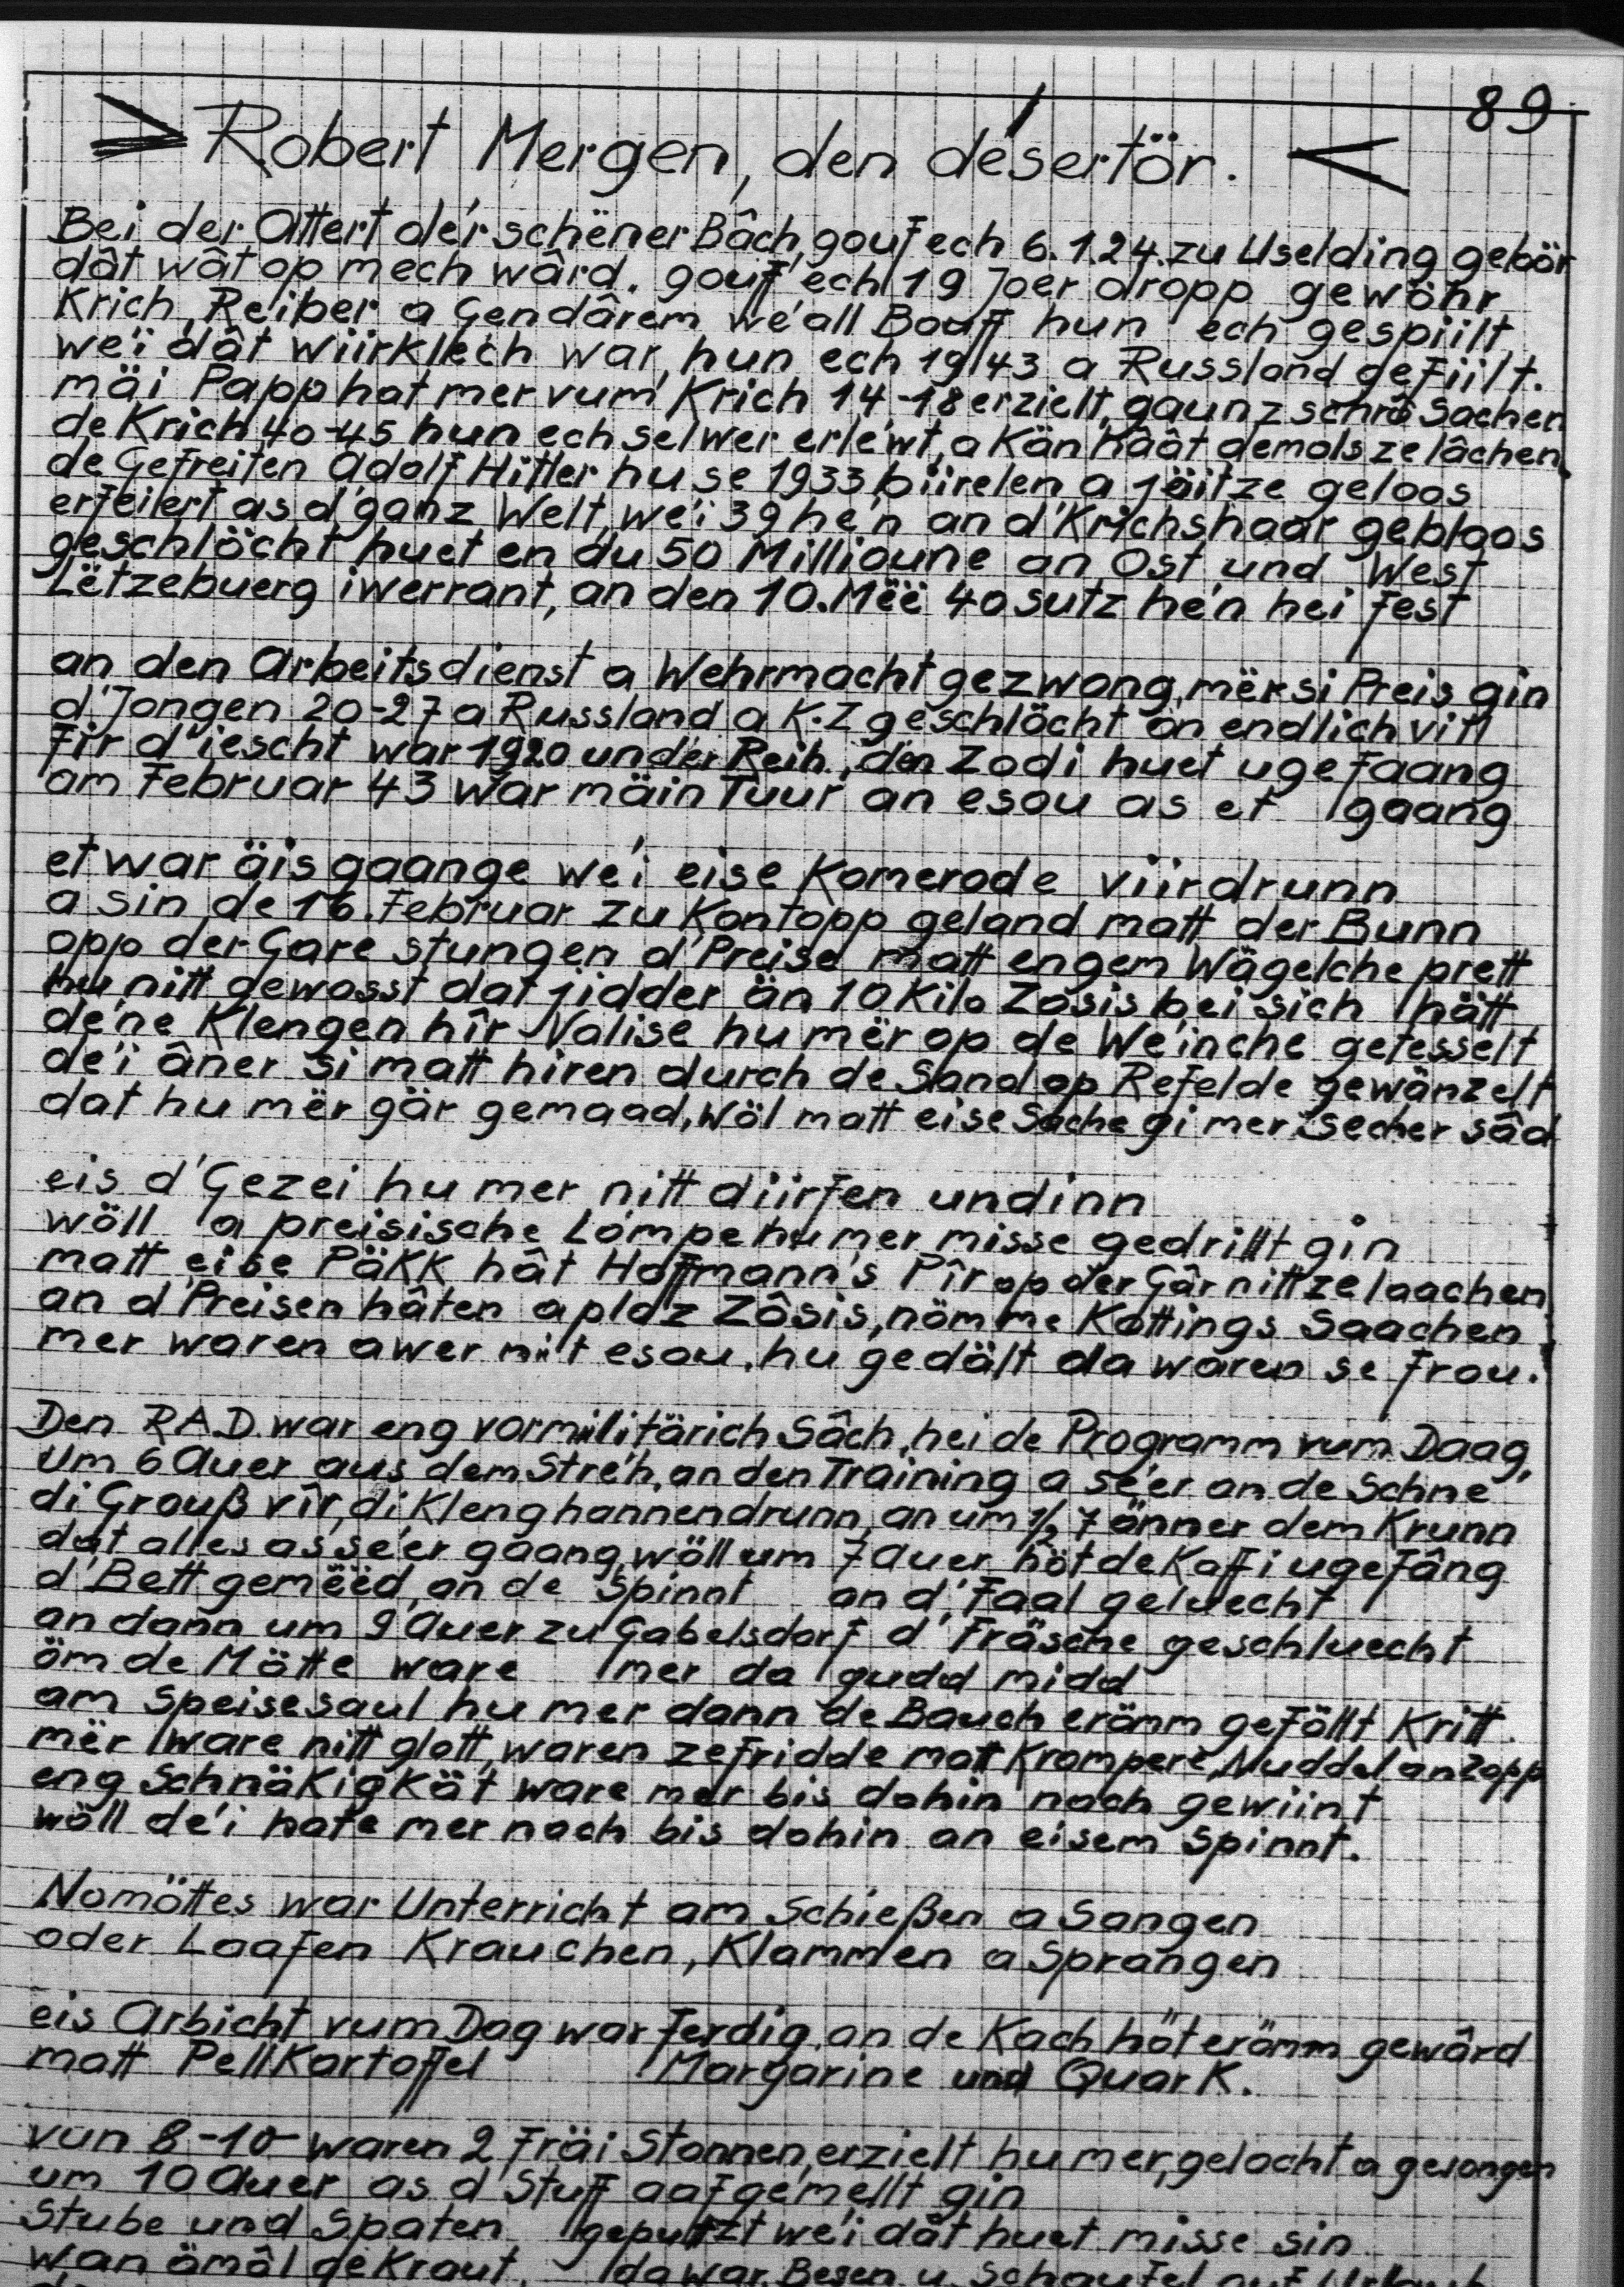 89
> Robert Mergen, den désertör. <
Bei der Attert dér schëner Bâch, gouf ech 6.1.24. zu Useldingen gebör
dât wât op mech wârd. gouf ech 19 Joer dropp gewöhr
Krich, Reiber a Gendârem wé all Bouff hun ech gespiilt
wéi dât wiirklech war, hun ech 1943 a Russland gefiilt.
mäi Papp hat mer vum Krich 14-18 erzielt, gaunz schrö Sachen
de Krich 40-45 hun ech selwer erléwt, a Kän hâât demols ze lâchen
de Gefreiten Adolf Hitler hu se 1933 biirelen a jäitze geloos
erfeilert as d'ganz Welt, wéi 39 hén an d'Krichshaar gebloos
geschlöcht huet en du 50 Millioune an Ost und West
Lëtzebuerg iwerrant, an den 10. Mëë 40 sutz hén hei fest
an den Arbeitsdienst a Wehrmacht gezwong, mër si Preis gin
d'Jongen 20-27 a Russland a K.Z geschlöcht ön endlich vill
fir d'iescht war 1920 un der Reih, den Zodi huet ugefaang
am Februar 43 war mäin Tuur an esou as et gaang
et war äis gaange wéi eise Komerode viirdrunn
a sin de 16. Februar zu Kontopp geland matt der Bunn
opp der Gare stungen d'Preise matt engem Wägelche prett
hu nitt gewosst dat jidder än 10 Kilo Zosis bei sich hätt
déne Klengen hîr Valise hu mër op de Wéinche getesselt
déi âner si matt hiren durch de Sand op Refelde gewänzelt
dat hu mër gär gemaad, wöl matt eise Sache gi mer secher sâd
eis d'Gezei hu mer nitt diirfen undinn
wöll a preisische Lömpe hu mer misse gedrillt gin
matt eise Päkk hât Hoffmann's Pîr op der Gâr nitt ze laachen
an d'Preisen hâten aplaz Zôsis, nömme Kottings Saachen
mer waren awer niit esou, hu gedält da waren se frou.
Den R.A.D. war eng vormilitärich Sâch, hei de Programm vum Daag,
Um 6 Auer aus dem Stréh, an den Training a séer an de Schné
di Grouß vîr, di Kleng hannendrunn, an um 1/2 7 önner dem Krunn
dat alles as séer gaang, wöll um 7 Auer höt de Kaffi ugefâng
d'Bett gemëëd, an de Spinnt an d'Faal geluecht
an dann um 9 Auer zu Gabelsdorf d'Fräsche geschluecht
öm de Mötte ware mer da gudd midd
am Speisesaul hu mer dann de Bauch erömm geföllt Kritt.
mër ware nitt glott, waren zefridde matt Krompere, Nuddel an Zopp
eng Schnäkigkät ware mer bis dohin noch gewiint
wöll déi hate mer nach bis dohin an eisem Spinnt.
Nomöttes war Unterricht am Schießen a Sangen
oder Laafen Krauchen, Klammen a Sprangen
eis Arbicht vum Dag war ferdig, an de Kach höt erömm gewârd
matt Pellkartoffel Margarine und Quark.
vun 8-10 waren 2 fräi Stonnen, erzielt hu mer, gelacht a gesongen
um 10 Auer as d'Stuff aafgemellt gin
Stube und Spaten geputzt wéi dât huet misse sin
wan ömôl gekraut, da war Besen u. Schaufel auf Urlaub